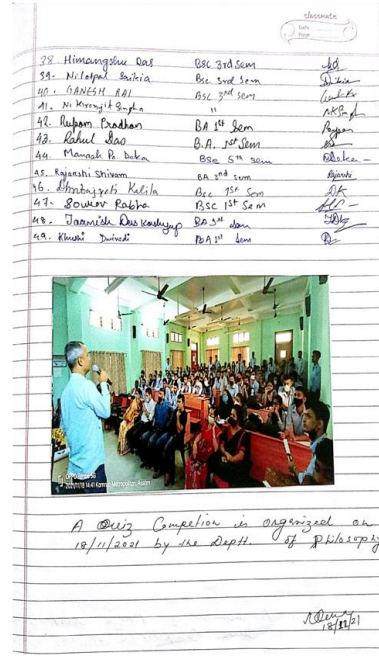 classmate
Date
Page
38. Himangshu Das BSc 3rd Sem
39. Nilotpal Saikia BSc 3rd Sem
40. GANESH RAI BSC 3rd Sem
41. N. Kironjit Singha "
42. Rupam Pradhan BA 1st Sem
43. Rahul Das B.A. 1st Sem
44. Manash Pr. Deka BSc 5th Sem
45. Rajanshi Shivam BA 2nd Sem
46. Kalita BSc 1st Sem
47. Sourov Rabha BSC 1st Sem
48. Das Kashyup BA 1st Sem
49. Khushi Dwivedi BA 1st Sem
2021/11/18 14:41 Kamrup Metropolitan, Assam
A Quiz Competion is organized on
18/11/2021 by the Deptt. of Philosophy
18/11/21